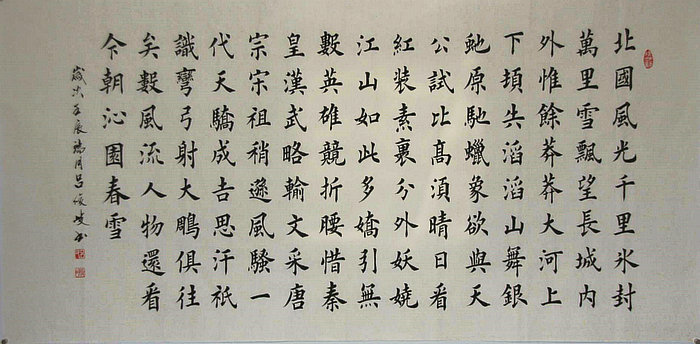 北國風光千里氷封
萬里雪飄望長城内
外惟餘莽莽大河上
下頓失滔滔山舞銀
虵原馳蠟象欲與天
公試比高須晴日看
紅装素裹分外妖嬈
江山如此多嬌引無
數英雄競折腰惜秦
皇漢武略輸文采唐
宗宋祖稍遜風騷一
代天驕成吉思汗祇
識彎弓射大鵰俱往
矣數風流人物還看
今朝沁園春雪
歲次壬辰瑞月呂